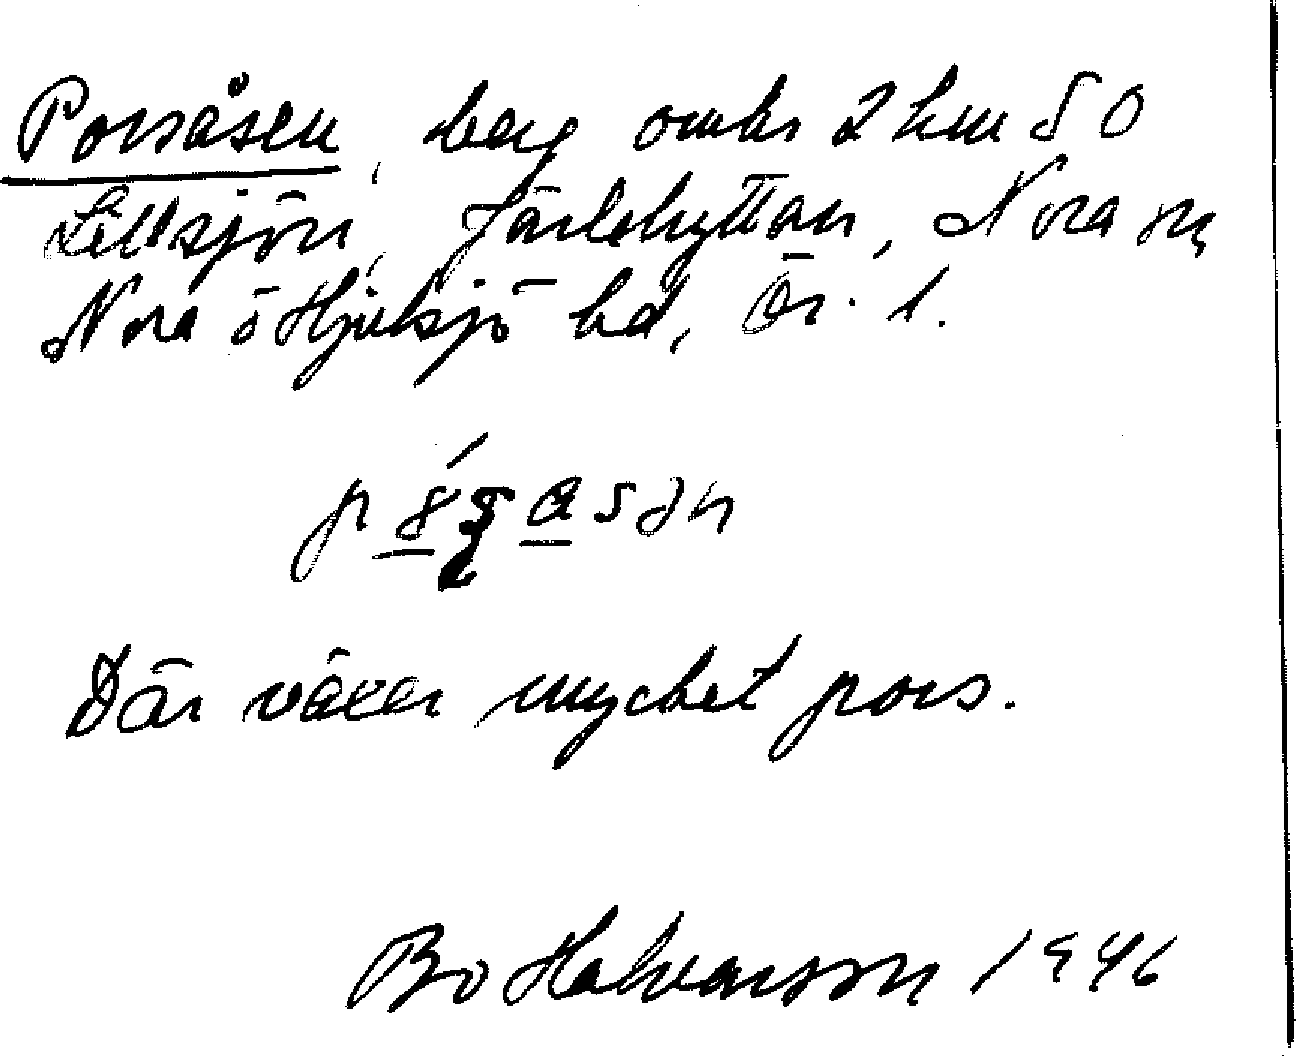 Porsåsen, berg omkr 2 km SO
Lillsjön, Järlehyttan, Nora sn,
Nora o Hjulsjö bd, Ör. l.
Där växer mycket pors.
Bo Halvarsson 1946